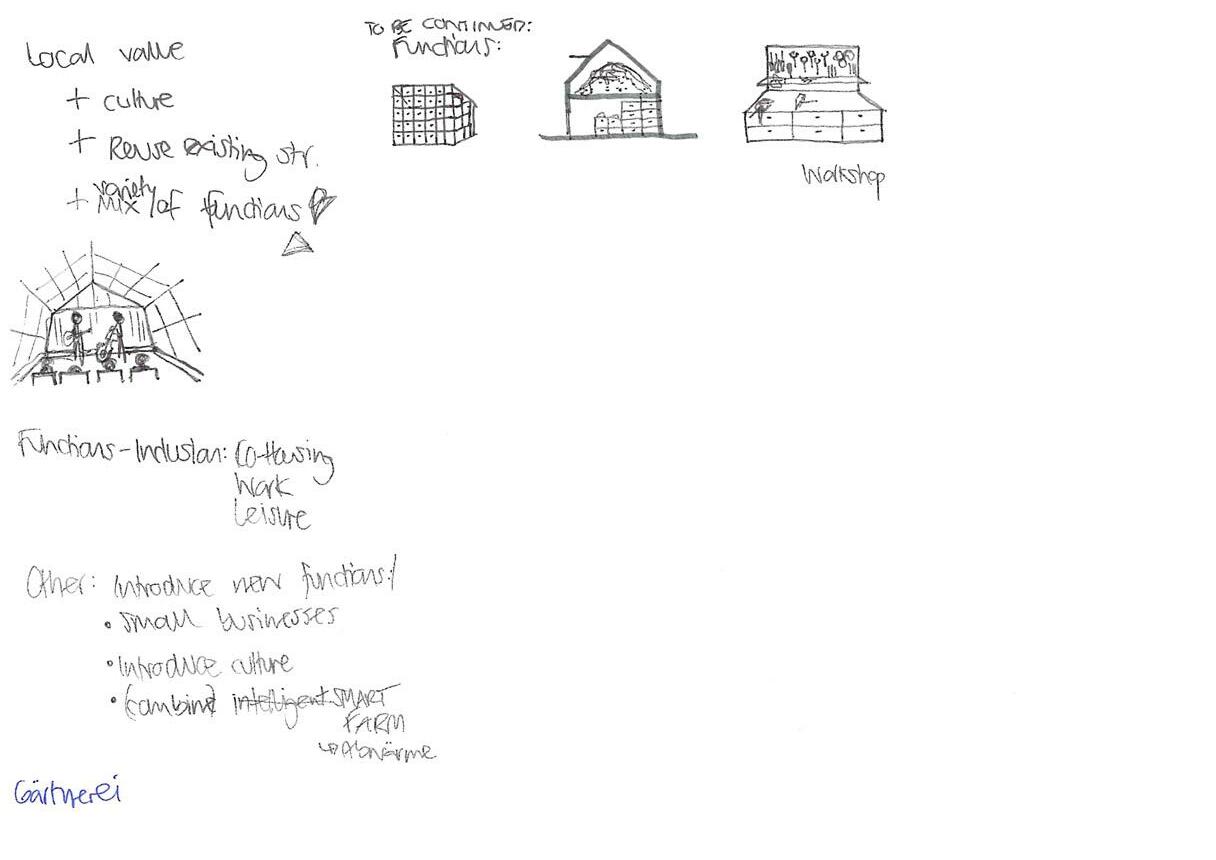 Local value
+ culture
+ Reuse existing str.
+ variety
Mix / of functions
TO BE CONTINUED:
Functions:
Workshop
Functions-Inclusion: Co-Housing
Work
Leisure
Other: Introduce new functions:/
• small businesses
• Introduce culture
• (combine) intelligent SMART
FARM
↳ Abwärme
Gärtnerei